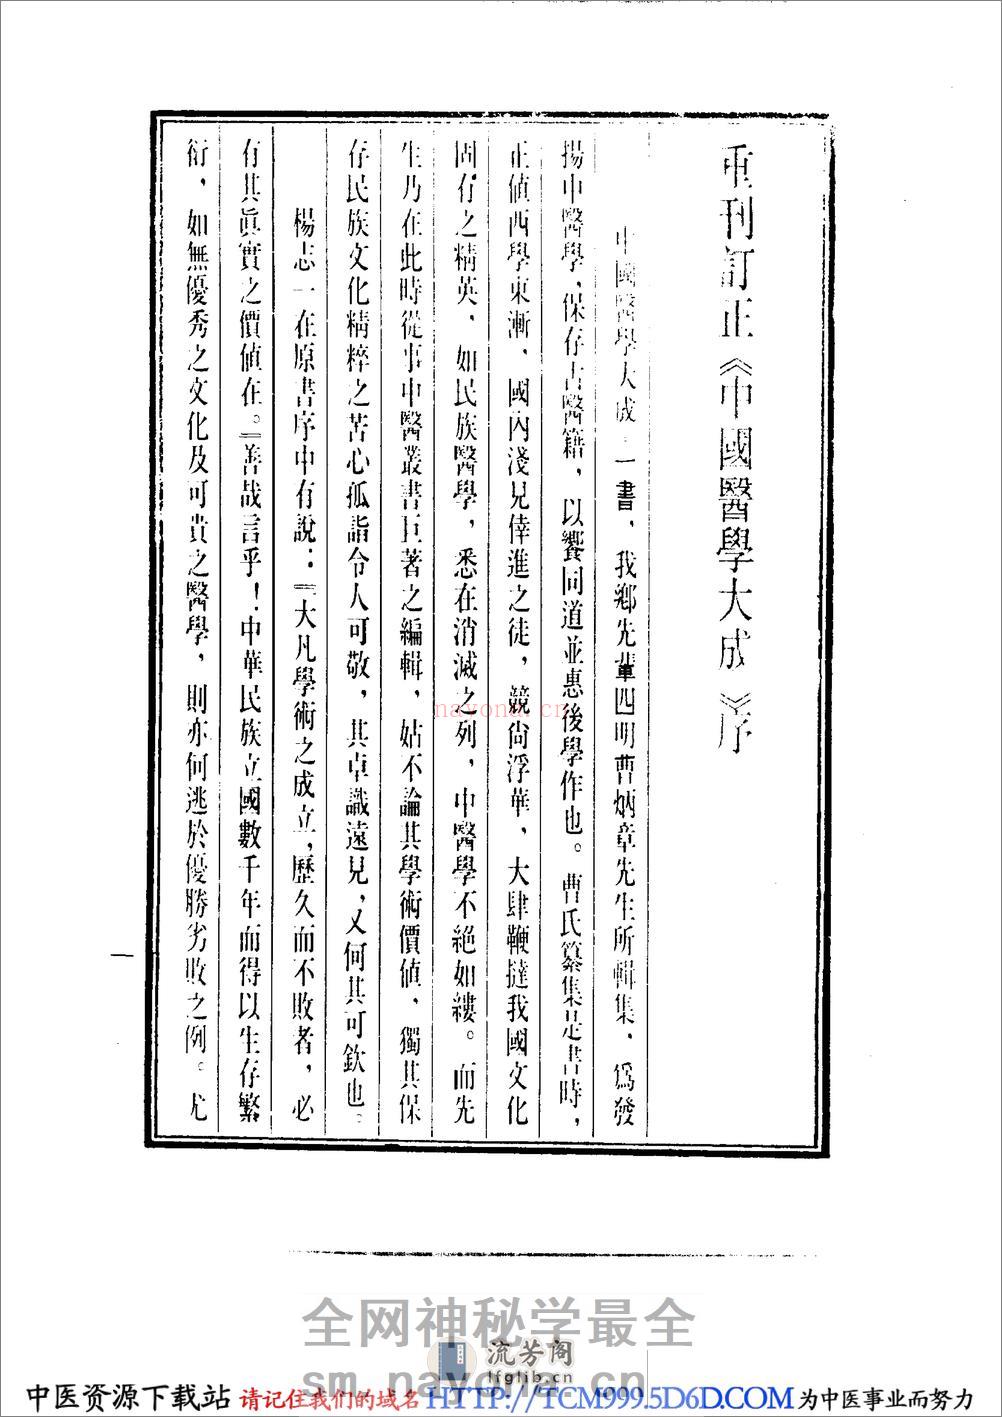 重刊訂正《中國醫學大成》序
中國醫學大成一書，我鄉先輩四明曹炳章先生所輯集，爲發
揚中醫學，保存古醫籍，以饗同道並惠後學作也。曹氏纂集是書時，
正值西學東漸，國內淺見倖進之徒，競尚浮華，大肆鞭撻我國文化
固有之精英，如民族醫學，悉在消滅之列，中醫學不絕如縷。而先
生乃在此時從事中醫叢書巨著之編輯，姑不論其學術價值，獨其保
存民族文化精粹之苦心孤詣令人可敬，其卓識遠見，又何其可欽也。
楊志一在原書序中有說：『大凡學術之成立，歷久而不敗者，必
有其眞實之價值在。』善哉言乎！中華民族立國數千年而得以生存繁
衍，如無優秀之文化及可貴之醫學，則亦何逃於優勝劣敗之例。尤
一
nayona.cn
全网神秘学最全
流芳阁
lfglib.cn
sm.nayona.cn
中医资源下载站 请记住我们的域名 HTTP://TCM999.5D6D.COM 为中医事业而努力